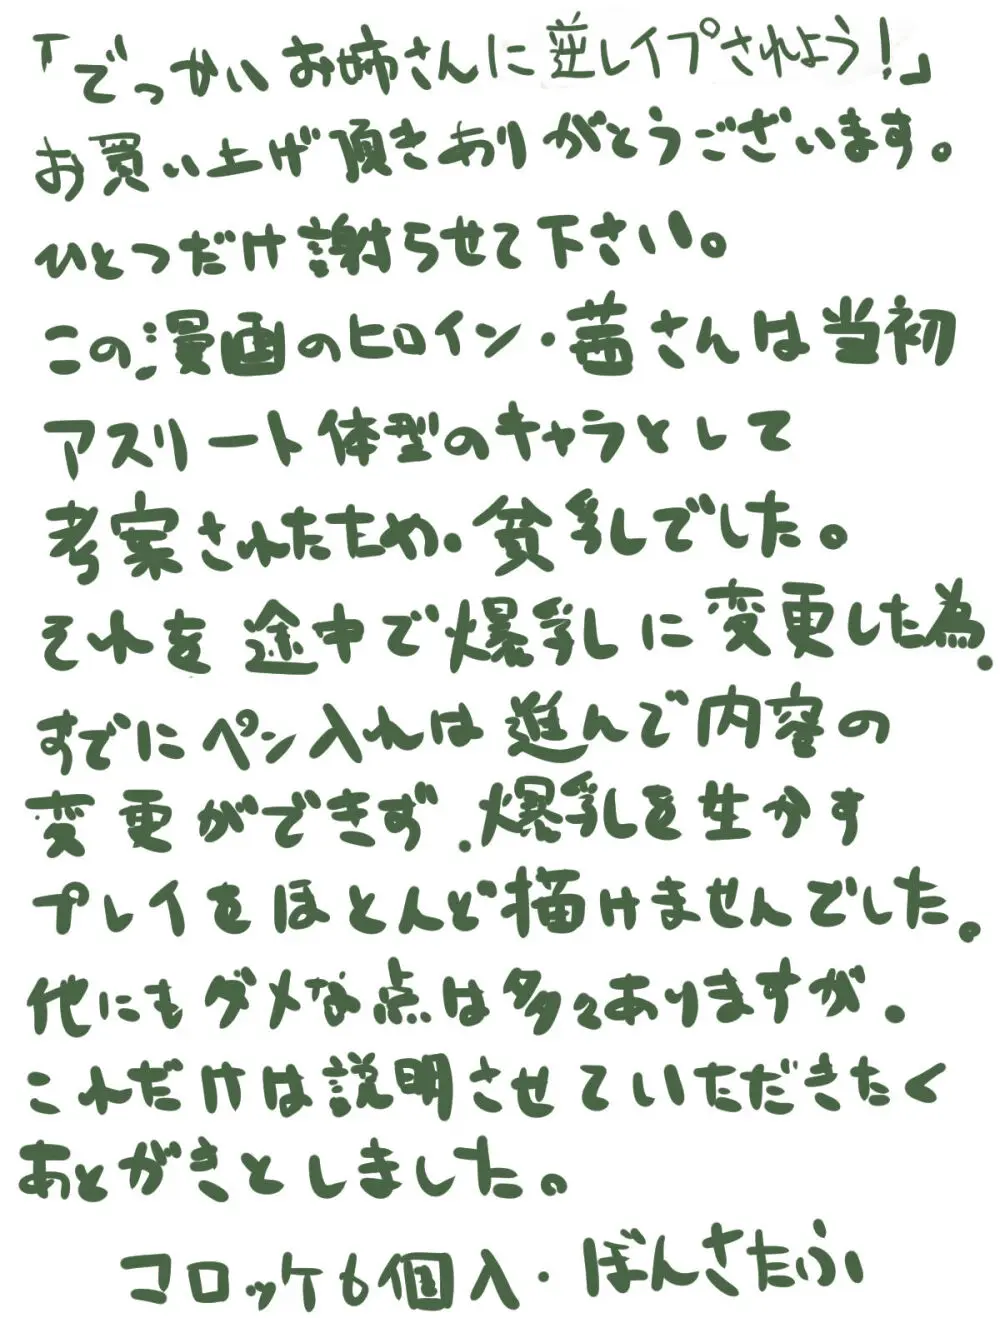 「でっかいお姉さんに逆レイプされよう!」
お買い上げ頂きありがとうございます。
ひとつだけ謝らせて下さい。
この漫画のヒロイン・茜さんは当初
アスリート体型のキャラとして
考案されたため・貧乳でした。
それを途中で爆乳に変更した為.
すでにペン入れは進んで内容の
変更ができず.爆乳を生かす
プレイをほとんど描けませんでした。
他にもダメな点は多々ありますが.
これだけは説明させていただきたく
あとがきとしました。
コロッケ6個入・ぼんさたふ